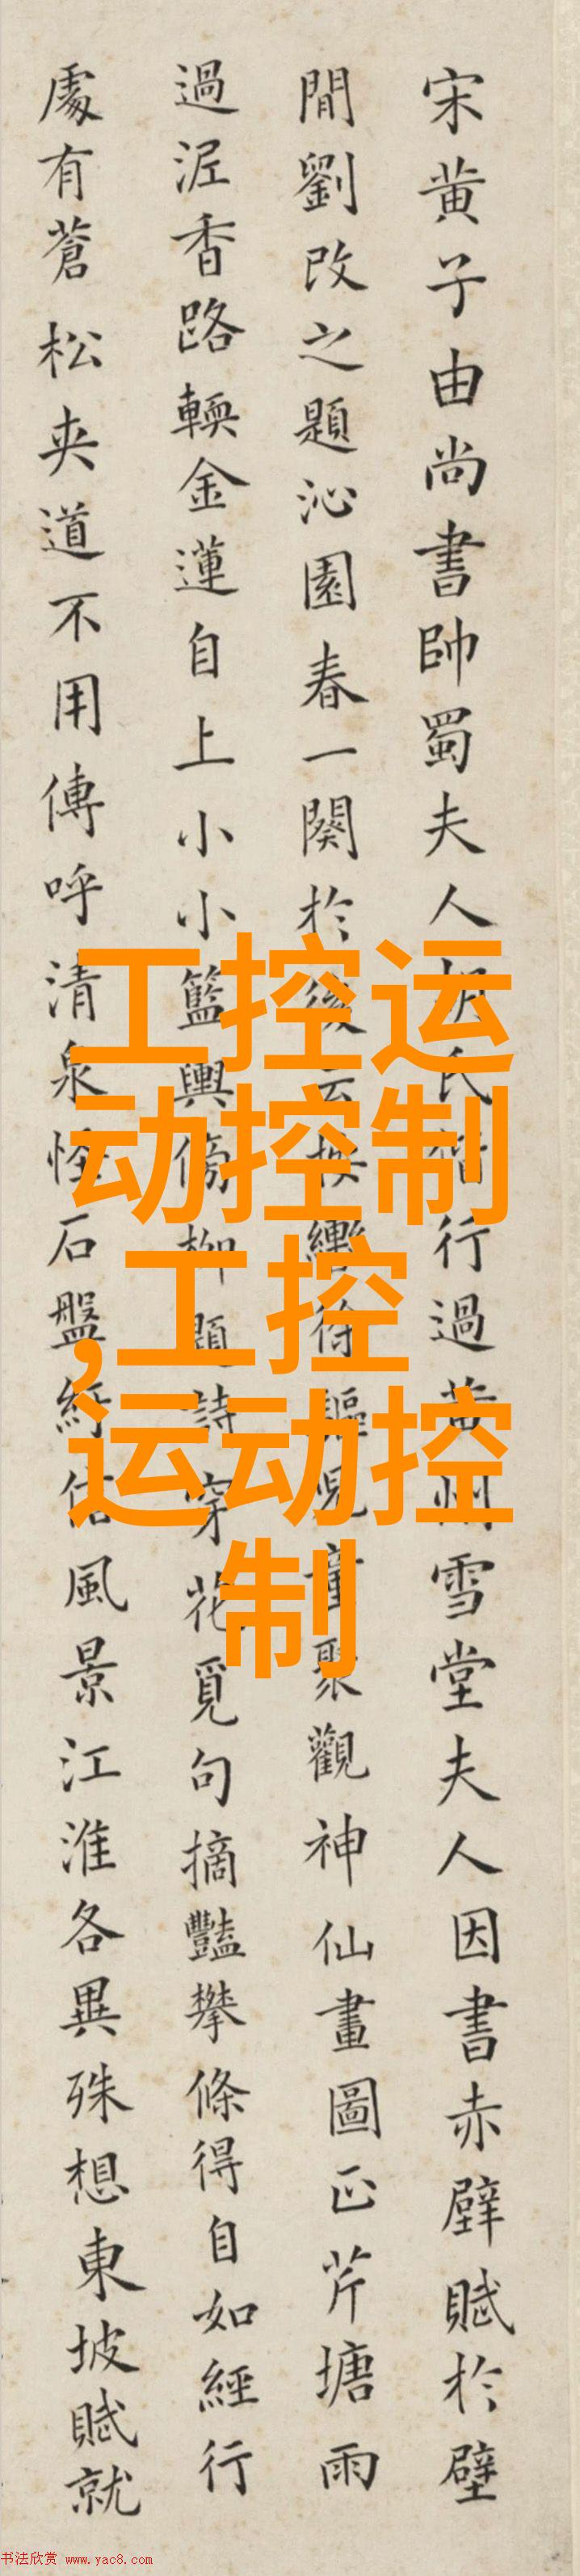 宋黄子由尚書帥蜀夫人胡氏偕行過黄州雪堂夫人因書赤壁賦於壁
閒劉改之題沁園春一闋於後云按轡徐驅兒童聚觀神仙畫圖正芹塘雨
過泥香路輭金蓮自上小小籃輿傍柳題詩穿花覓句摘豔攀條得自如經行
處有蒼松夾道不用傳呼清泉怪石盤紆信風景江淮各異殊想東坡賦就
工控运
动控制
,工控
运动控
制
书法欣赏 www.yac8.com